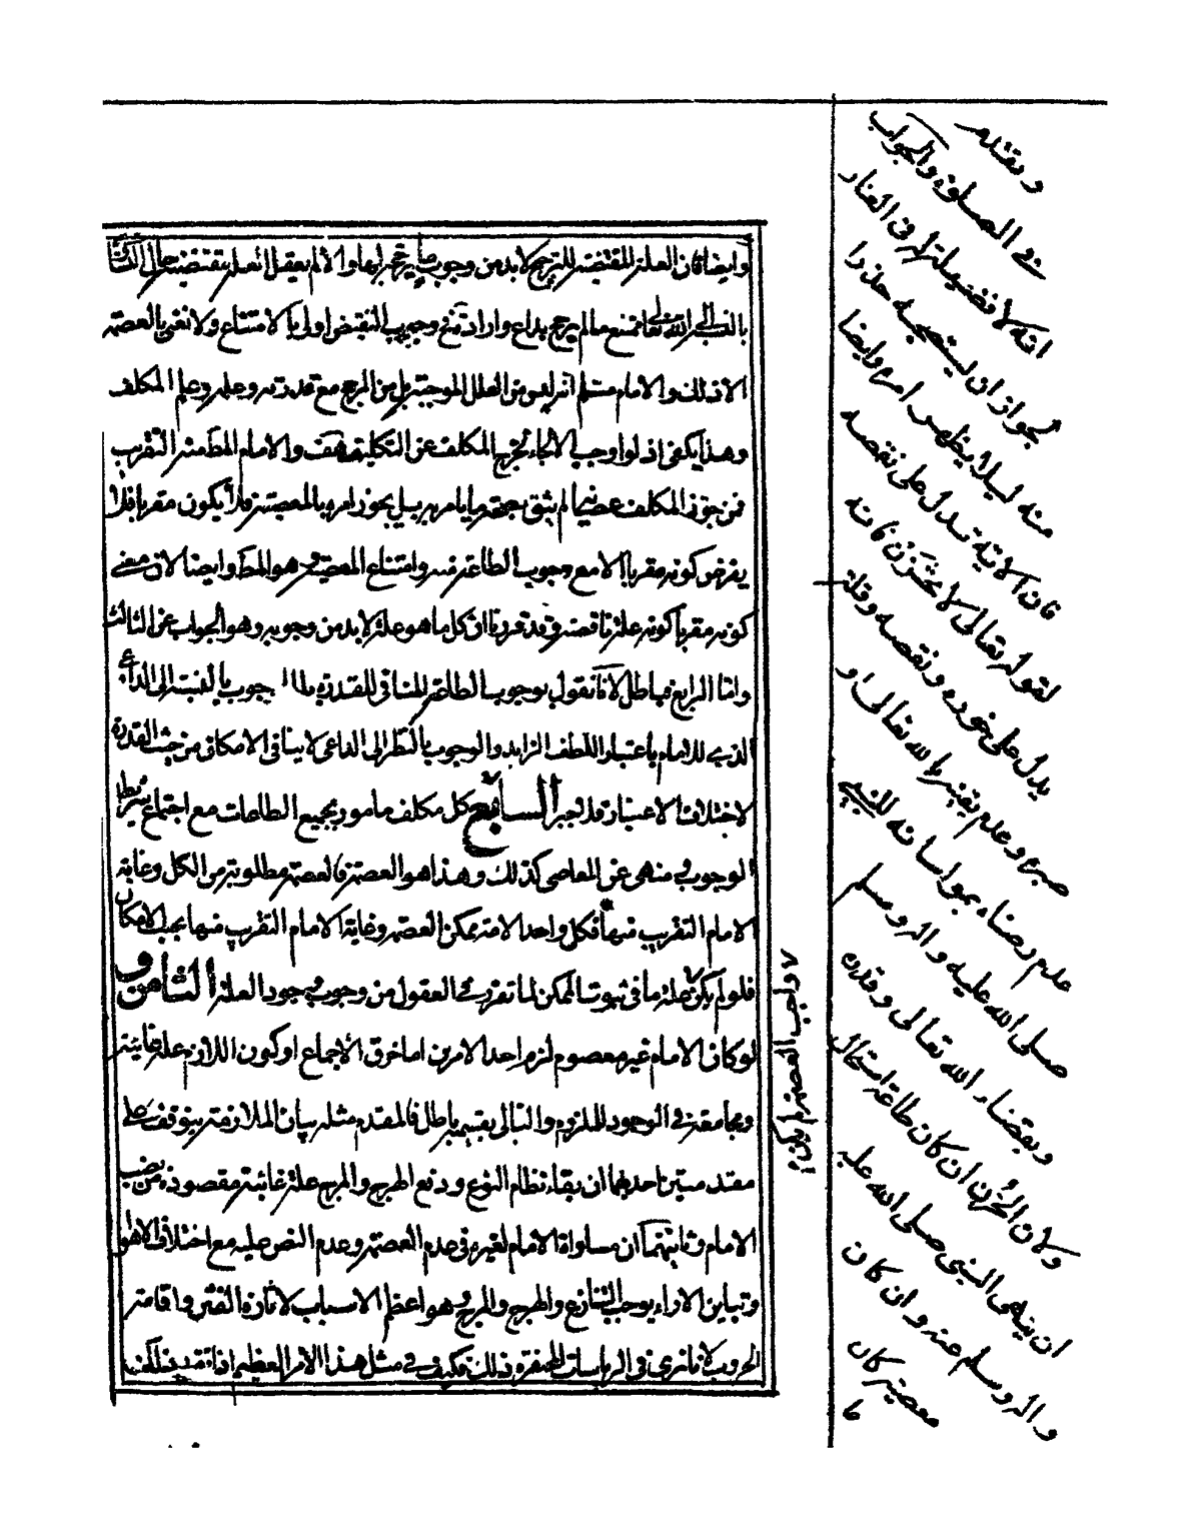 وايضا فان العلة المقتضية للترجيح لابد من وجوب ما يترجح بها والا لم يعقل العلة مقتضية
بالنسبة الى الله تعالى يمتنع ما لم يرجح بداع وارادة فمع وجوب النقيض اولى بالامتناع ولا نعنى بالعصمة
الا ذلك والامام مسلم انه ليس من العلل الموجبة بل من المرجح مع قدرته وعلمه وعلم المكلف
وهذا يكفى اذ لو اوجب الالجاء لخرج المكلف عن التكليف هف والامام المط منه التقريب
فمن جوز المكلف عصيانه لم يثق بصحة ما يامر به بل يجوز امره بالمعصية فلا يكون مقربا فلا
يفرض كونه مقربا الا مع وجوب الطاعة منه وامتناع المعصية وهو المط وايضا لان معنى
كونه مقربا كونه علة ناقصة وقد قررنا ان كل ما هو علة لابد من وجوبه وهو الجواب عن الثالث
واما الرابع فباطل لانا نقول بوجوب الطاعة المنافى للقدرة بل الوجوب بالنسبة الى الداعى
الذى للامام باعتبار اللطف الزايد والوجوب بالنظر الى الداعى لا ينافى الامكان من حيث القدرة
لاختلاف الاعتبار قد تعبر السابع كل مكلف مامور بجميع الطاعات مع اجتماع شرايط
الوجوب ومنهى عن المعاصى كذلك وهذا هو العصمة فالعصمة مطلوبة من الكل وغاية
الامام التقريب منها فكل واحد الامة ممكن العصمة وغاية الامام التقريب منها بحسب الامكان
فلو لم يكن علة ما فى ثبوت الممكن لما تقرر فى العقول من وجوب وجود العلة الثامن و
لو كان الامام غير معصوم لزم احد الامرين اما خرق الاجماع او كون اللازم علة غائية
ومجامعة فى الوجود للملزوم والتالى بقسميه باطل فالمقدم مثله بيان الملازمة يتوقف على
مقدمتين احديهما ان بقاء نظام النوع ودفع الهرج والمرج علة غائية مقصودة من نصب
الامام وثانيتهما ان مساواة الامام لغيره فى عدم العصمة وعدم النص عليه مع اختلاف الاهواء
وتباين الاراء يوجب التنازع والهرج والمرج وهو اعظم الاسباب لاثارة الفتن واقامة
الحروب لانا نرى فى الرياسات المحتقرة ذلك فكيف فى مثل هذا الامر العظيم اذا تقرر ذلك
وتقدم
فى الصلوة والجواب
انه لا فضيلة له فى الغار
لجواز ان يستصحبه حذرا
منه ليلا يظهر امره وايضا
فان الاية تدل على نقصه
لقوله تعالى لا تحزن فانه
يدل على خوره ونقصه وقلة
صبره وعلم يقينه بالله تعالى و
عدم رضاه بمواساته للنبى
صلى الله عليه واله وسلم
وبقضاء الله تعالى وقدره
ولان الحزن ان كان طاعة استحال
ان ينهى النبى صلى الله عليه
واله وسلم عنه وان كان
معصية كان
ما